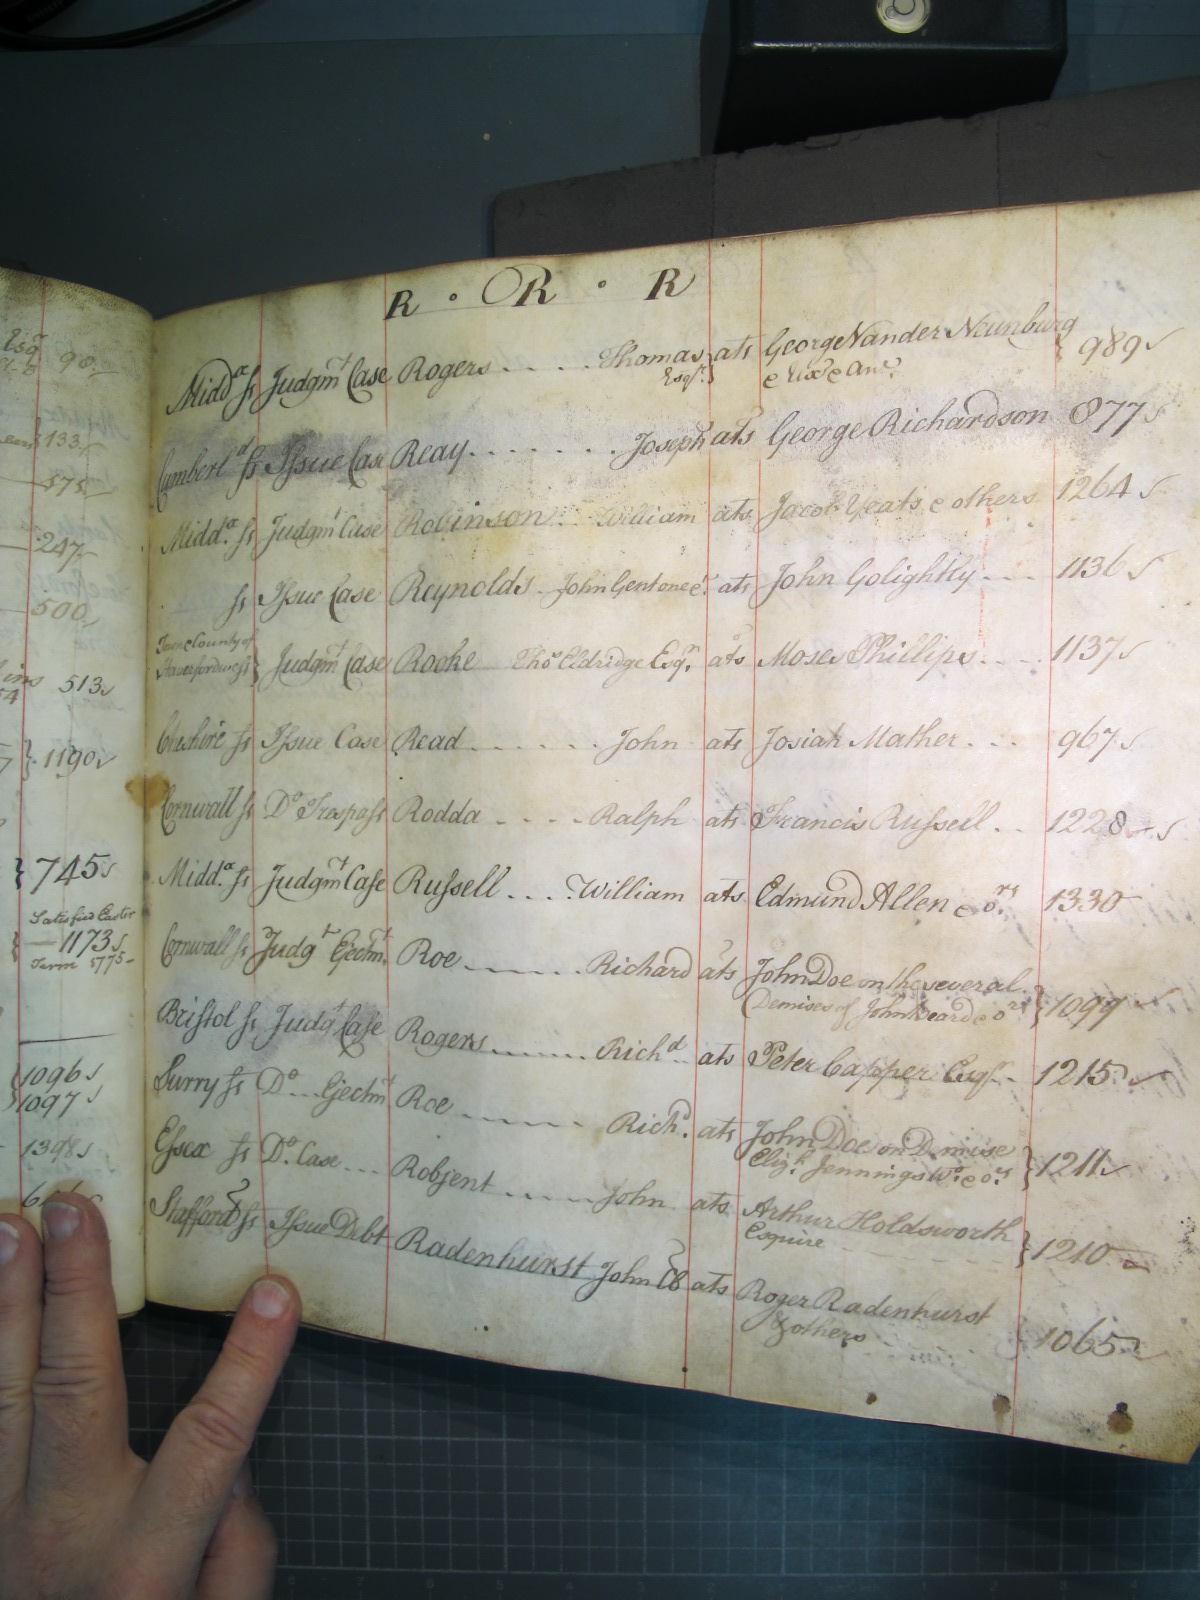 R . R . R
Midd.ª ss Judgm.t Case Rogers .... Thomas Esq.r } ats George Vander Neunburg } 989
e Ux.e e An.r
Cumberl.d ss Issue Case Reay ....... Joseph ats George Richardson 877
Midd.ª ss Judgm.t Case Robinson ... William ats Jacob Yeats e others 1264
ss Issue Case Reynolds - John Gent one e.t ats John Golightly --- 1136
Town e County of
Haverfordwest } Judgm.t Case Rooke Tho.s Eldridge Esq.r ats Moses Phillips .... 1137
Cheshire ss Issue Case Read ...... John ats Josiah Mather ... 967
Cornwall ss D.o Trespass Rodda .... Ralph ats Francis Russell .. 1228
Midd.ª ss Judgm.t Case Russell .... William ats Edmund Allen e o.rs 1330
Cornwall ss Judg.t Ejectm.t Roe ...... Richard ats John Doe on the several
Demises of John Beard e o.rs } 1099
Bristol ss Judg.t Case Rogers ...... Rich.d ats Peter Capper Esq.r 1215
Surry ss D.o Ejectm.t Roe ...... Rich.d ats John Doe on Demise
Eliz.h Jennings W.o e o.rs } 1211
Essex ss D.o Case ... Robjent ..... John ats Arthur Holdsworth
Esquire } 1210
Stafford ss Issue Debt Radenhurst John ats Roger Radenhurst
& others } 1065
Esq.r 90
133
575
247
500
513
} 1190
} 745
Satisfied Easter
1173
Term 1775
1096
1097
1398